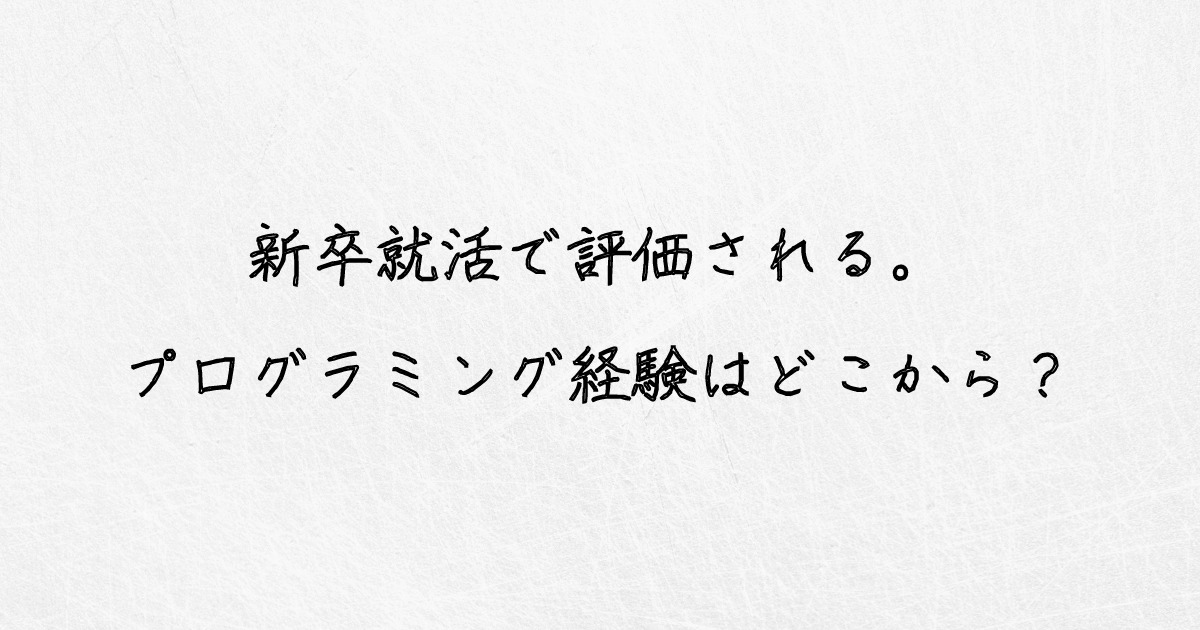 新卒就活で評価される。
プログラミング経験はどこから？